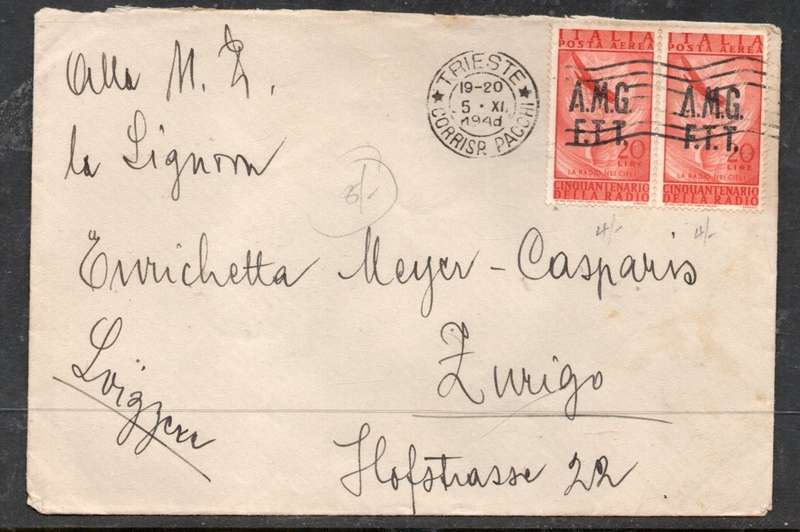 Alla N. D.
la Signora
Enrichetta Meyer-Casparis
Zurigo
Hofstrasse 22
Svizzera
TRIESTE
19-20
5 · XI.
CORRISP. PACCHI
ITALIA
POSTA AEREA
A.M.G.
F.T.T.
20
LIRE
LA RADIO NEI CIELI
CINQUANTENARIO
DELLA RADIO
ITALIA
POSTA AEREA
A.M.G.
F.T.T.
20
LIRE
LA RADIO NEI CIELI
CINQUANTENARIO
DELLA RADIO
4/-
4/-